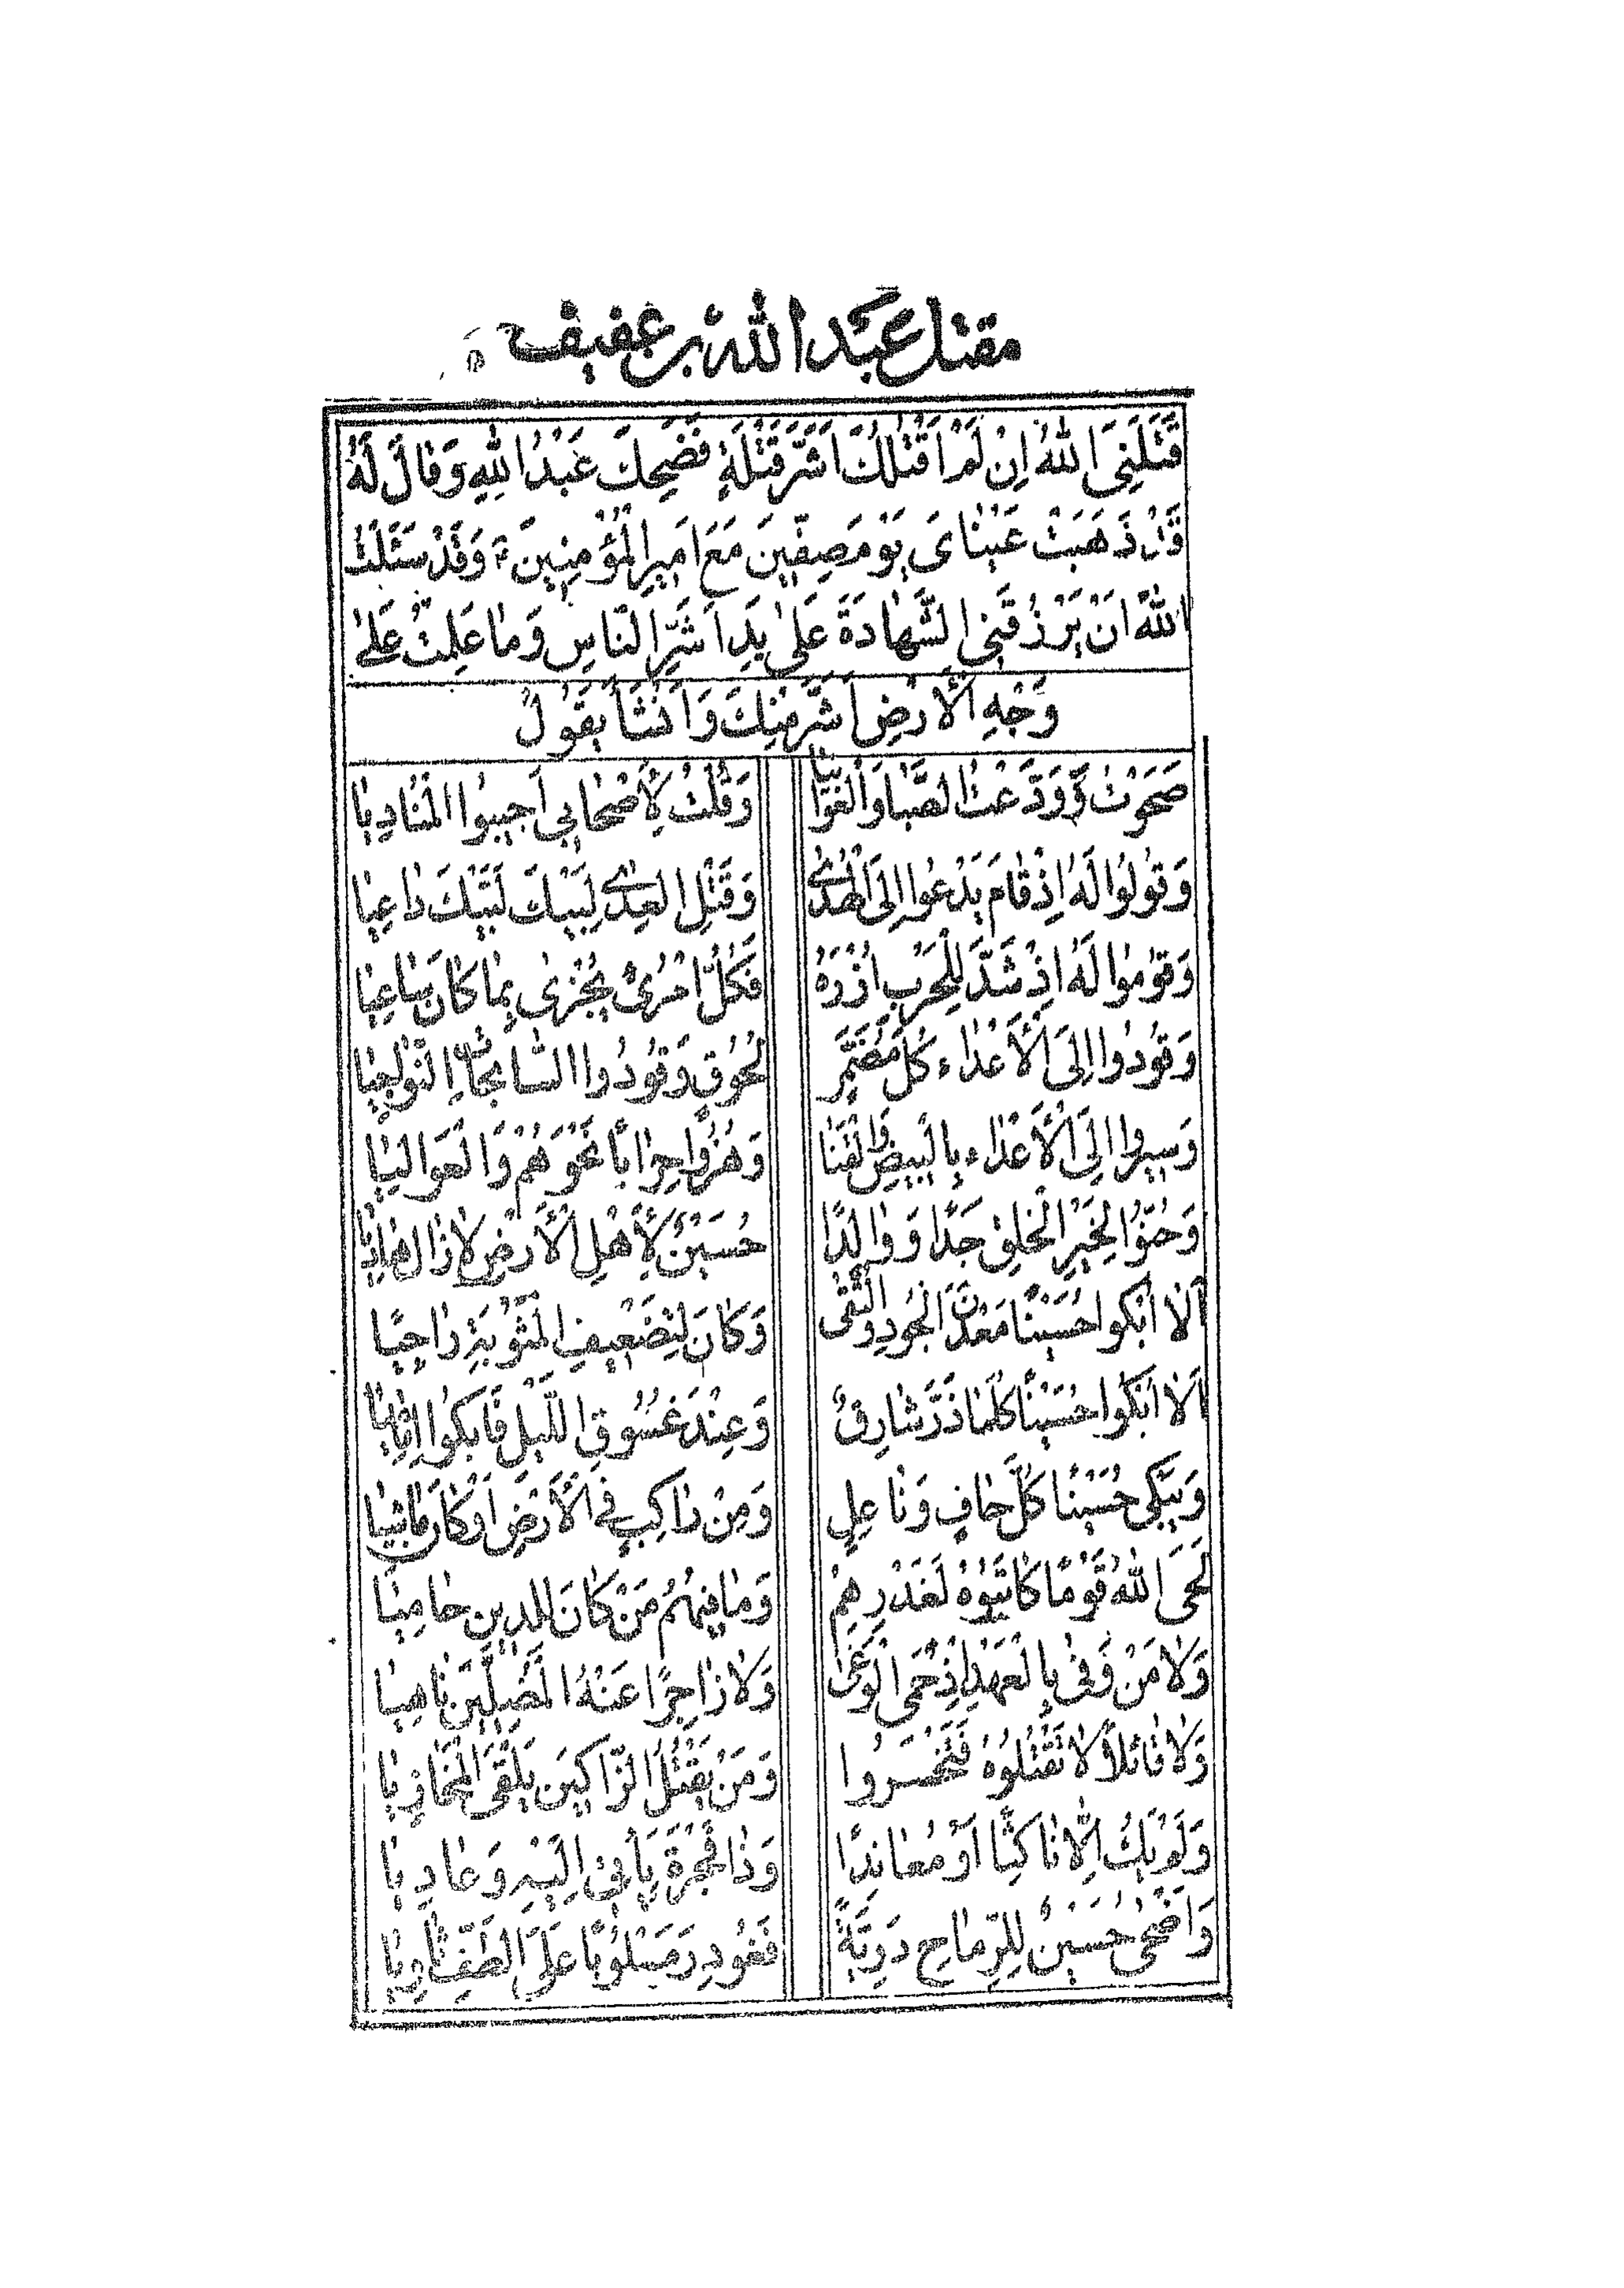 مقتل عبد الله بن عفيف
قَتَلَنِيَ اللهُ اِنْ لَمْ اَقْتُلْكَ اَشَرَّ قَتْلَةٍ فَضَحِكَ عَبْدُ اللهِ وَقَالَ لَهُ
قَدْ ذَهَبَتْ عَيْنَايَ يَوْمَ صِفّينَ مَعَ اَمِيرِ الْمُؤْمِنِينَ وَقَدْ سَئَلْتُ
اللهَ اَنْ يَرْزُقَنِي الشَّهَادَةَ عَلىٰ يَدِ اَشَرِّ النَّاسِ وَمَا عَلِمْتُ عَلىٰ
وَجْهِ الْأَرْضِ اَشَرَّ مِنْكَ وَاَنْشَأَ يَقُولُ
صَحَوْتُ وَوَدَّعْتُ الصَّبَا وَالْغَوَانِيَا وَقُلْتُ لِأَصْحَابِي اَجِيبُوا الْمُنَادِيَا
وَقُولُوا لَهُ اِذْ قَامَ يَدْعُوا اِلَى الْهُدىٰ وَقَتْلِ الْعِدىٰ لَبَّيْكَ لَبَّيْكَ دَاعِيَا
وَقُومُوا لَهُ اِذْ شَدَّ لِلْحَرْبِ اُزْرَهُ فَكُلُّ امْرِئٍ يُجْزىٰ بِمَا كَانَ سَاعِيَا
وَقُودُوا اِلَى الْأَعْدَاءِ كُلَّ مُضَمَّرٍ لَحُوقٍ وَقُودُوا السَّابِحَاتِ النَّوَاجِيَا
وَسِيرُوا اِلَى الْأَعْدَاءِ بِالْبِيضِ وَالْقَنَا وَهُزُّوا حِرَابًا نَحْوَهُمْ وَالْعَوَالِيَا
وَحُنُّوا لِخَيْرِ الْخَلْقِ جَدًّا وَوَالِدًا حُسَيْنٌ لِأَهْلِ الْأَرْضِ لَا زَالَ هَادِيَا
اَلَا ابْكُوا حُسَيْنًا مَعْدِنَ الْجُودِ وَالتُّقىٰ وَكَانَ لِتَضْعِيفِ الْمَثُوبَةِ رَاجِيًا
اَلَا ابْكُوا حُسَيْنًا كُلَّمَا ذَرَّ شَارِقٌ وَعِنْدَ غُسُوقِ اللَّيْلِ فَابْكُوا اِمَامِيَا
وَيَبْكِي حُسَيْنًا كُلُّ حَافٍ وَنَاعِلٍ وَمِنْ رَاكِبٍ فِي الْأَرْضِ اَوْ كَانَ مَاشِيَا
لَحَى اللهُ قَوْمًا كَاتَبُوهُ لِغَدْرِهِمْ وَمَا فِيهُمُ مَنْ كَانَ لِلدِّينِ حَامِيَا
وَلَا مَنْ وَفىٰ بِالْعَهْدِ اِذْ حَمِيَ الْوَغىٰ وَلَا زَاجِرًا عَنْهُ الْمُضِلِّينَ نَاهِيَا
وَلَا قَائِلًا لَا تَقْتُلُوهُ فَتَخْسَرُوا وَمَنْ يَقْتُلِ الزَّاكِينَ يَلْقَى الْمَخَازِيَا
وَلَمْ يَكُ اِلَّا نَاكِثًا اَوْ مُعَانِدًا وَذَا فَجْرَةٍ يَأْتِي اِلَيْهِ وَعَادِيَا
وَاَضْحىٰ حُسَيْنٌ لِلرِّمَاحِ دَرِيَّةً فَغُودِرَ مَسْلُوبًا عَلَى الطَّفِّ ثَاوِيَا